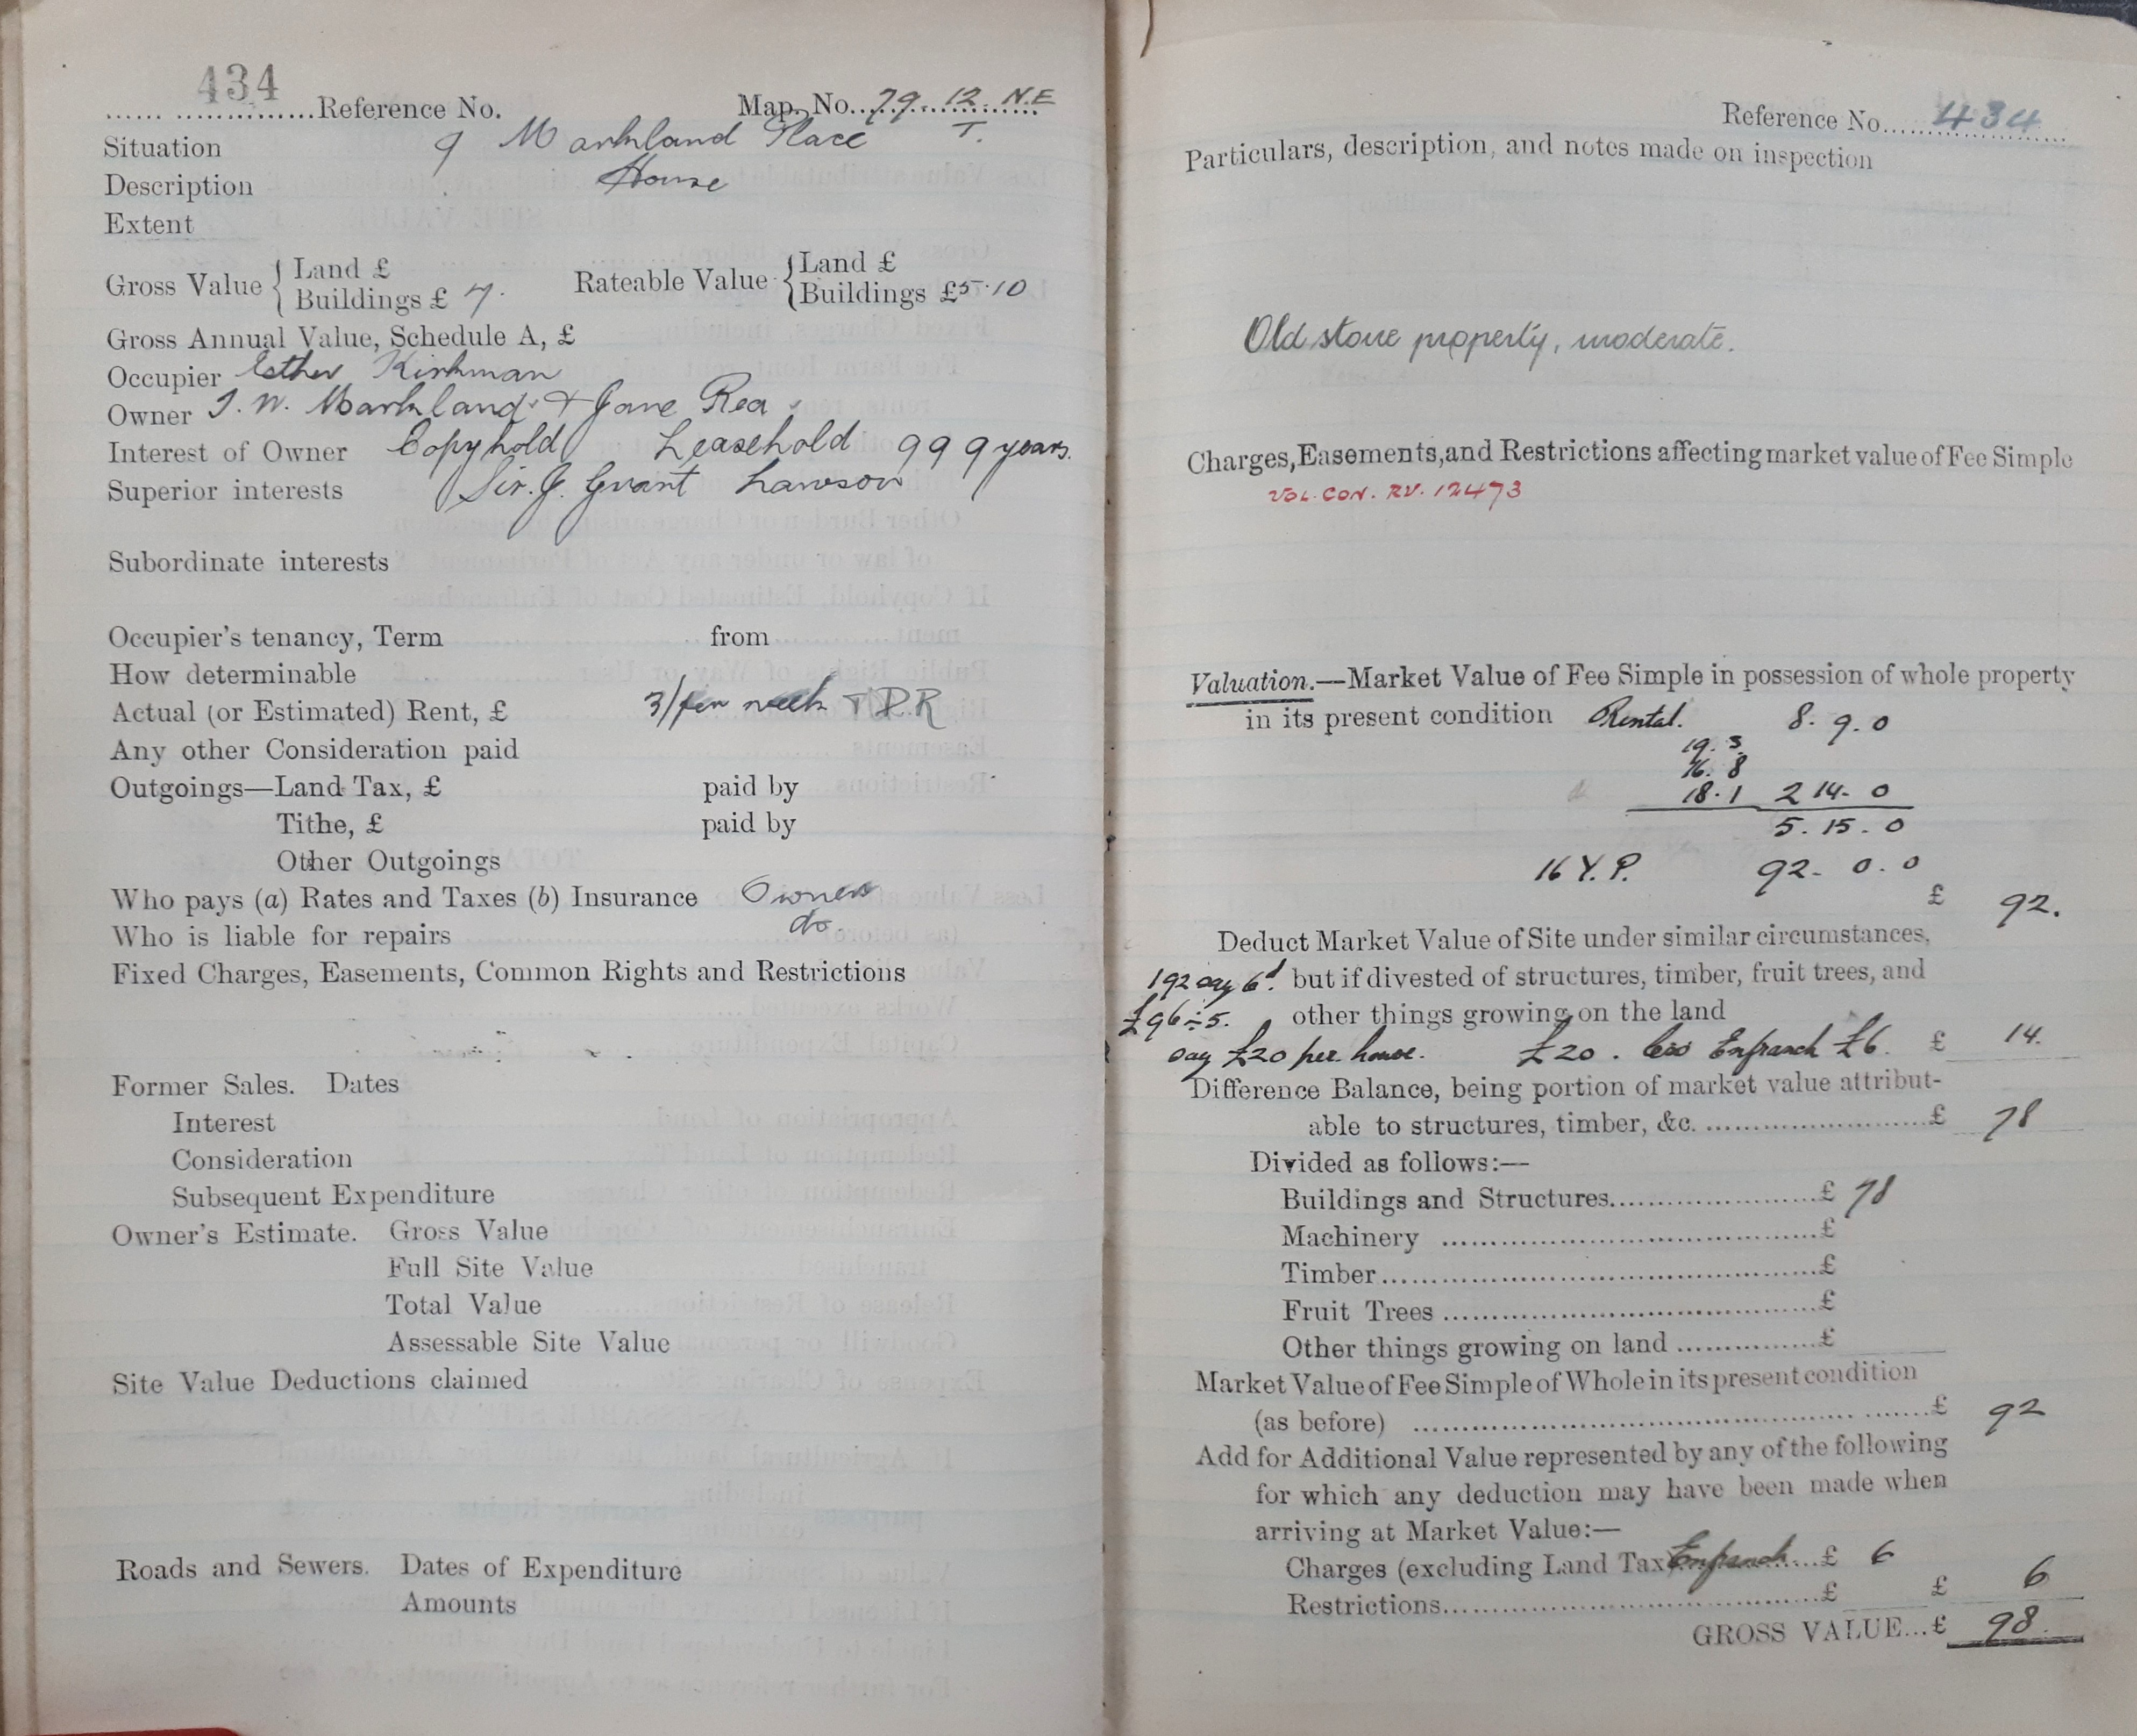 434
Reference No. Map. No. 79. 12. N.E
Situation 9 Markland Place T.
Description House
Extent
Gross Value { Land £ Rateable Value { Land £
Buildings £ 7. Buildings £5.10
Gross Annual Value, Schedule A, £
Occupier Esther Kirkman
Owner J. W. Markland & Jane Rea
Interest of Owner Copyhold Leasehold 999 years.
Superior interests Sir. J. Grant Lawson
Subordinate interests
Occupier's tenancy, Term from
How determinable
Actual (or Estimated) Rent, £ 3/ per week
Any other Consideration paid
Outgoings—Land Tax, £ paid by
Tithe, £ paid by
Other Outgoings
Who pays (a) Rates and Taxes (b) Insurance Owners
Who is liable for repairs do.
Fixed Charges, Easements, Common Rights and Restrictions
Former Sales. Dates
Interest
Consideration
Subsequent Expenditure
Owner's Estimate. Gross Value
Full Site Value
Total Value
Assessable Site Value
Site Value Deductions claimed
Roads and Sewers. Dates of Expenditure
Amounts
Reference No. 434
Particulars, description, and notes made on inspection
Old stone property, moderate.
Charges, Easements, and Restrictions affecting market value of Fee Simple
VOL. CON. RV. 12473
Valuation.—Market Value of Fee Simple in possession of whole property
in its present condition Rental. 8. 9. 0
19. 3
16. 8
18. 1 2 14. 0
5. 15. 0
16 Y. P. 92. 0. 0
£ 92.
Deduct Market Value of Site under similar circumstances,
192 @ 6d. but if divested of structures, timber, fruit trees, and
£96÷5. other things growing on the land
say £20 per house. £20. less Enfranch £6. £ 14.
Difference Balance, being portion of market value attribut-
able to structures, timber, &c. £ 78
Divided as follows:—
Buildings and Structures £ 78
Machinery £
Timber £
Fruit Trees £
Other things growing on land £
Market Value of Fee Simple of Whole in its present condition
(as before) £ 92
Add for Additional Value represented by any of the following
for which any deduction may have been made when
arriving at Market Value:—
Charges (excluding Land Tax) Enfranch £ 6
Restrictions £ £ 6
GROSS VALUE...£ 98.